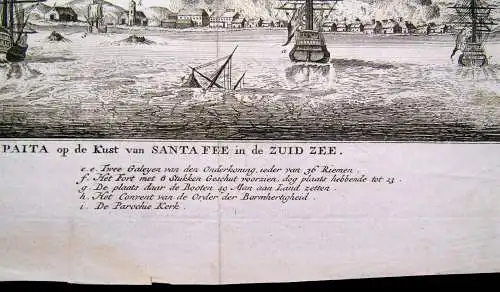 PAITA op de Kust van SANTA FEE in de ZUID ZEE.
e.e. Twee Galeyen van den Onderkoning, ieder van 36 Riemen.
f. Het Fort met 8 Stukken Geschut voorzien, dog plaats hebbende tot 13.
g. De plaats daar de Booten 40 Man aan Land zetten.
h. Het Convent van de Order der Barmhertigheid.
i. De Parochie Kerk.